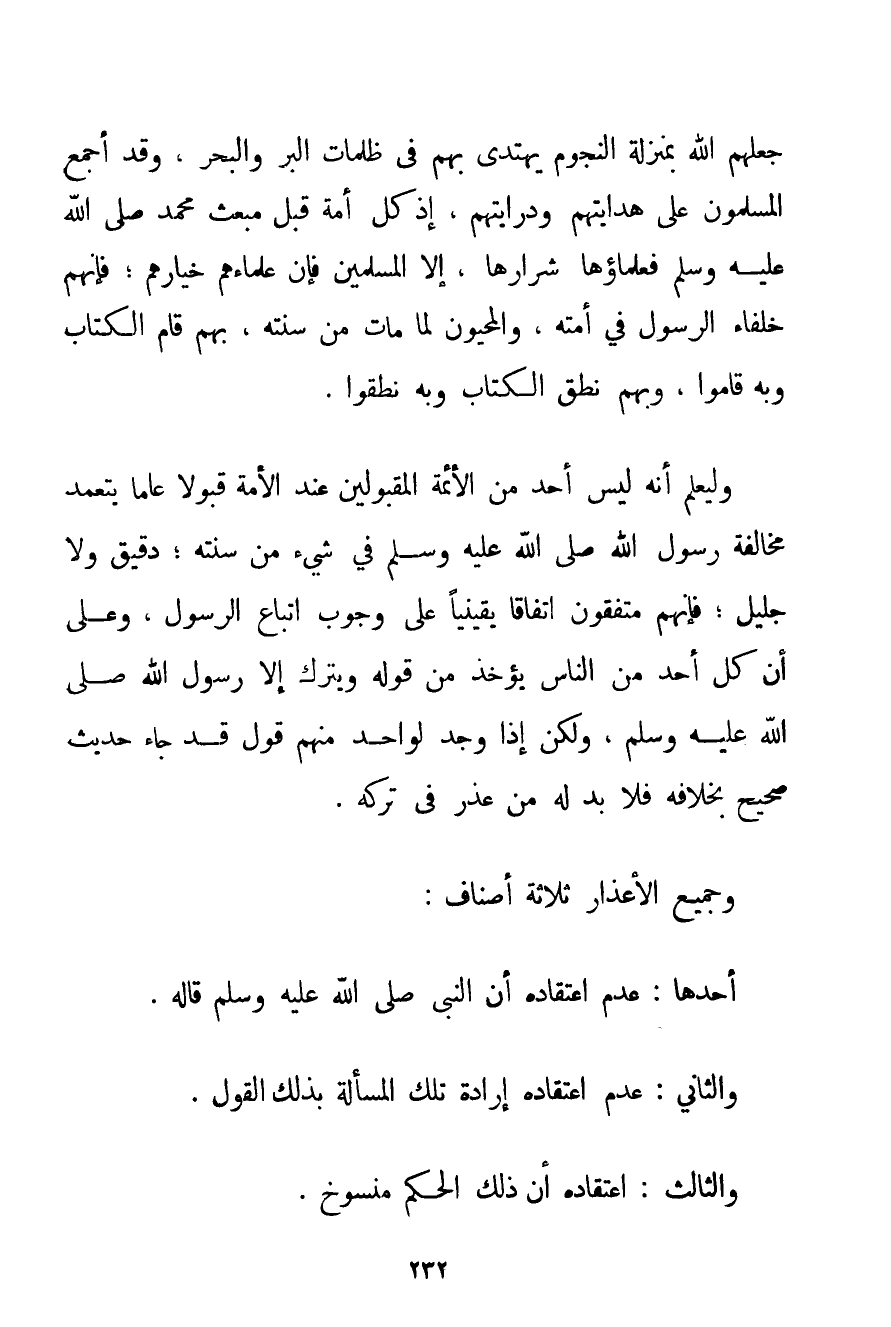 جعلهم الله بمنزلة النجوم يهتدى بهم فى ظلمات البر والبحر ، وقد أجمع
المسلمون على هدايتهم ودرايتهم ، إذ كل أمة قبل مبعث محمد صلى الله
عليه وسلم فعلماؤها شرارها ، إلا المسلمين فإن علماءهم خيارهم ؛ فإنهم
خلفاء الرسول في أمته ، والمحيون لما مات من سنته ، بهم قام الكتاب
وبه قاموا ، وبهم نطق الكتاب وبه نطقوا .
وليعلم أنه ليس أحد من الأئمة المقبولين عند الأمة قبولا عاما يتعمد
مخالفة رسول الله صلى الله عليه وسلم في شيء من سنته ؛ دقيق ولا
جليل ؛ فإنهم متفقون اتفاقا يقينياً على وجوب اتباع الرسول ، وعلى
أن كل أحد من الناس يؤخذ من قوله ويترك إلا رسول الله صلى
الله عليه وسلم ، ولكن إذا وجد لواحد منهم قول قد جاء حديث
صحيح بخلافه فلا بد له من عذر فى تركه .
وجميع الأعذار ثلاثة أصناف :
أحدها : عدم اعتقاده أن النبى صلى الله عليه وسلم قاله .
والثاني : عدم اعتقاده إرادة تلك المسألة بذلك القول .
والثالث : اعتقاده أن ذلك الحكم منسوخ .
٢٣٢